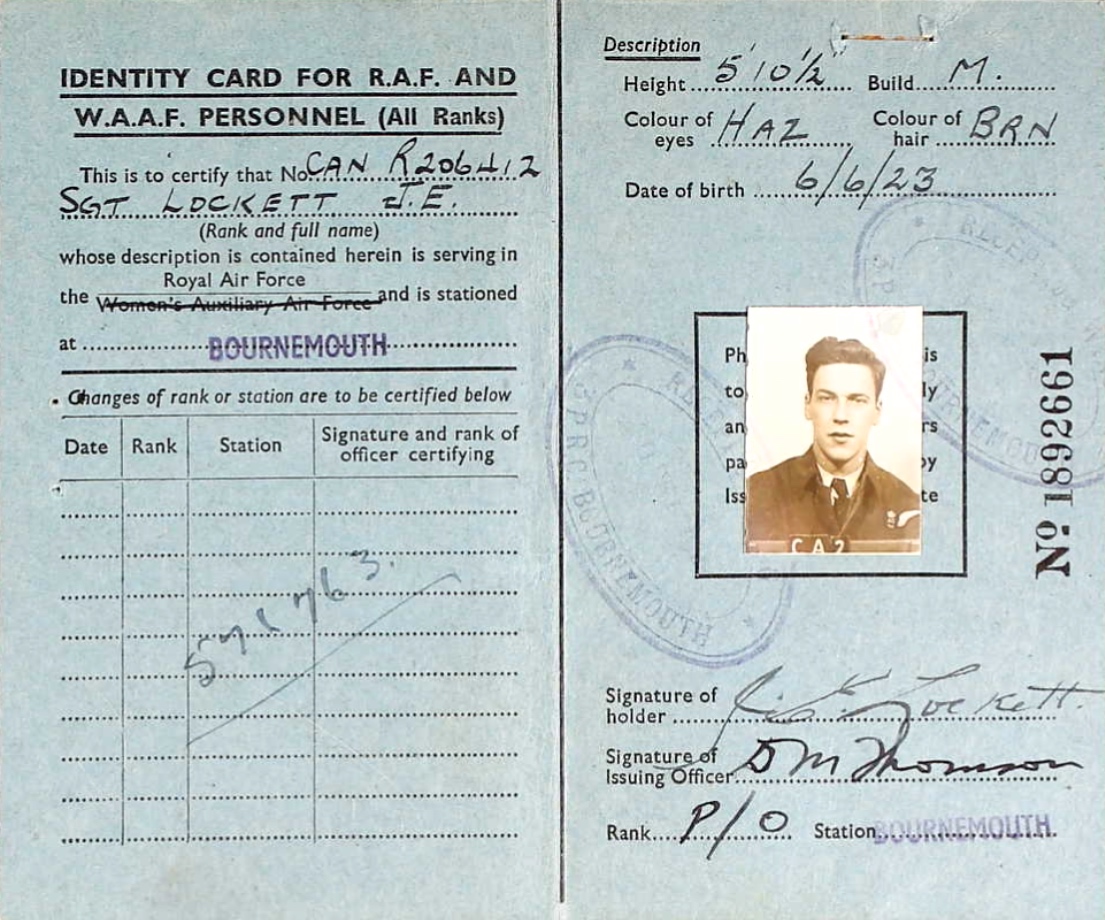 IDENTITY CARD FOR R.A.F. AND
W.A.A.F. PERSONNEL (All Ranks)
This is to certify that No. CAN R206412
SGT LOCKETT J.E.
(Rank and full name)
whose description is contained herein is serving in
Royal Air Force
the Women's Auxiliary Air Force and is stationed
at BOURNEMOUTH
Changes of rank or station are to be certified below
Date Rank Station Signature and rank of
officer certifying
Description
Height 5' 10½" Build M.
Colour of eyes HAZ Colour of hair BRN
Date of birth 6/6/23
Ph is
to ly
an rs
pa by
Iss te
CA2
3 P.R.C. BOURNEMOUTH
BOURNEMOUTH
No 1892661
Signature of
holder J. E. Lockett.
Signature of
Issuing Officer D M Thomson
Rank P/O Station BOURNEMOUTH.